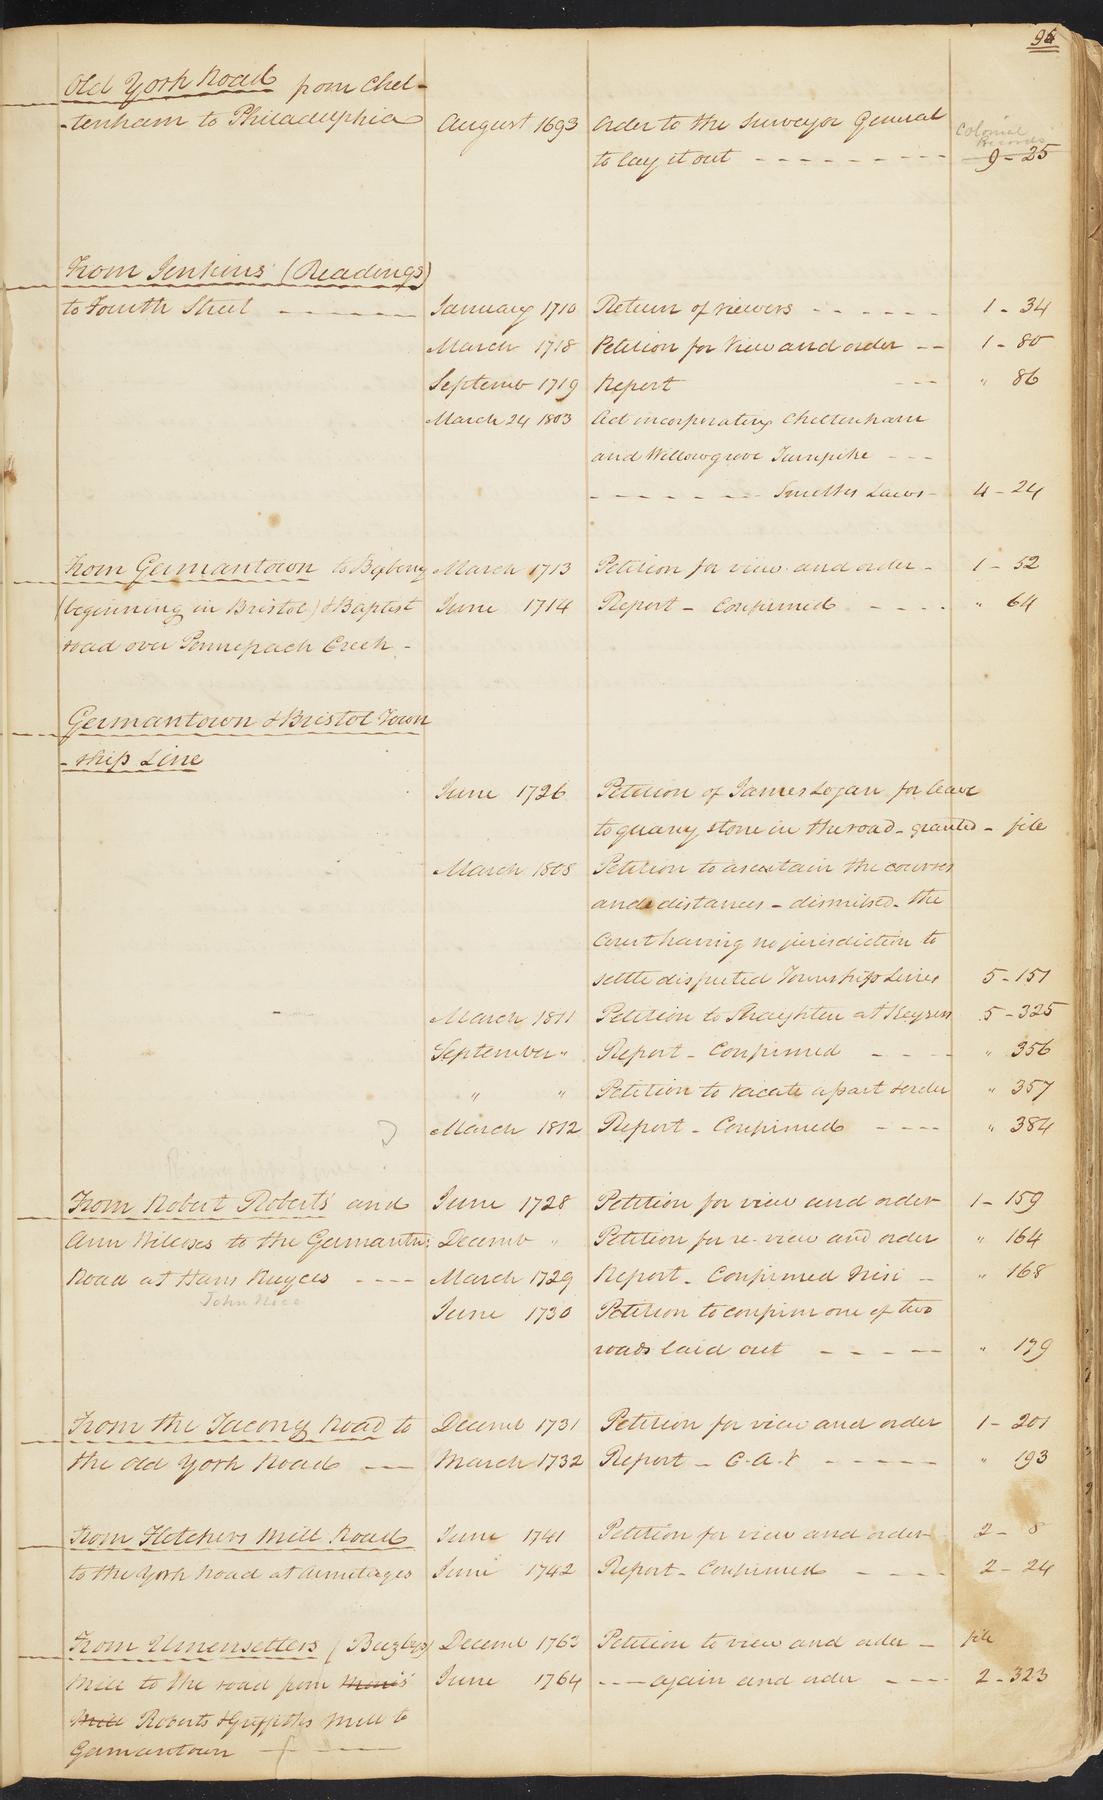 95
Old York Road from Chel-
-tenham to Philadelphia August 1693 Order to the Surveyor General
Colonial Records
to lay it out - - - - - - - - - 9 - 25
From Jenkins' (Readings)
to Fourth Street - - - - - - January 1710 Return of viewers - - - - - - 1 - 34
March 1718 Petition for View and order - - 1 - 80
Septemb 1719 Report - - - " 86
March 24 1803 Act incorporating Cheltenham
and Willowgrove Turnpike - - -
- - - - - - - Smiths Laws - 4 - 24
From Germantown to Byberry March 1713 Petition for view and order - 1 - 52
(beginning in Bristol) & Baptist June 1714 Report - Confirmed - - - - " 64
road over Pennepack Creek -
Germantown & Bristol Town
- ship Line
June 1726 Petition of James Logan for leave
to quarry stone in the road - granted - file
March 1808 Petition to ascertain the courses
and distances - dismissed - the
Court having no jurisdiction to
settle disputed Township Lines 5 - 151
March 1811 Petition to straighten at Keysers 5 - 325
September " Report - Confirmed - - - - " 356
" " Petition to vacate a part & order " 357
March 1812 Report - Confirmed - - - - " 384
From Robert Roberts' and June 1728 Petition for view and order 1 - 159
Ann Wilcoxes to the Germantn: Decemb " Petition for re-view and order " 164
Road at Hans Ruyces - - - - March 1729 Report - Confirmed Nisi - - " 168
John Nice
June 1730 Petition to confirm one of two
roads laid out - - - - - " 179
From the Tacony Road to Decemb 1731 Petition for view and order 1 - 201
the old York Road - - - March 1732 Report - C.A.V - - - - - - " 193
From Fletchers Mill Road June 1741 Petition for view and order 2 - 8
to the York Road at Armitages June 1742 Report - Confirmed - - - - 2 - 24
From Umensetters (Buzbys) Decemb 1763 Petition to view and order - file
Mill to the road from June 1764 - - - again and order - - - 2 - 323
Mill Roberts & Griffiths Mill to
Germantown - - - -